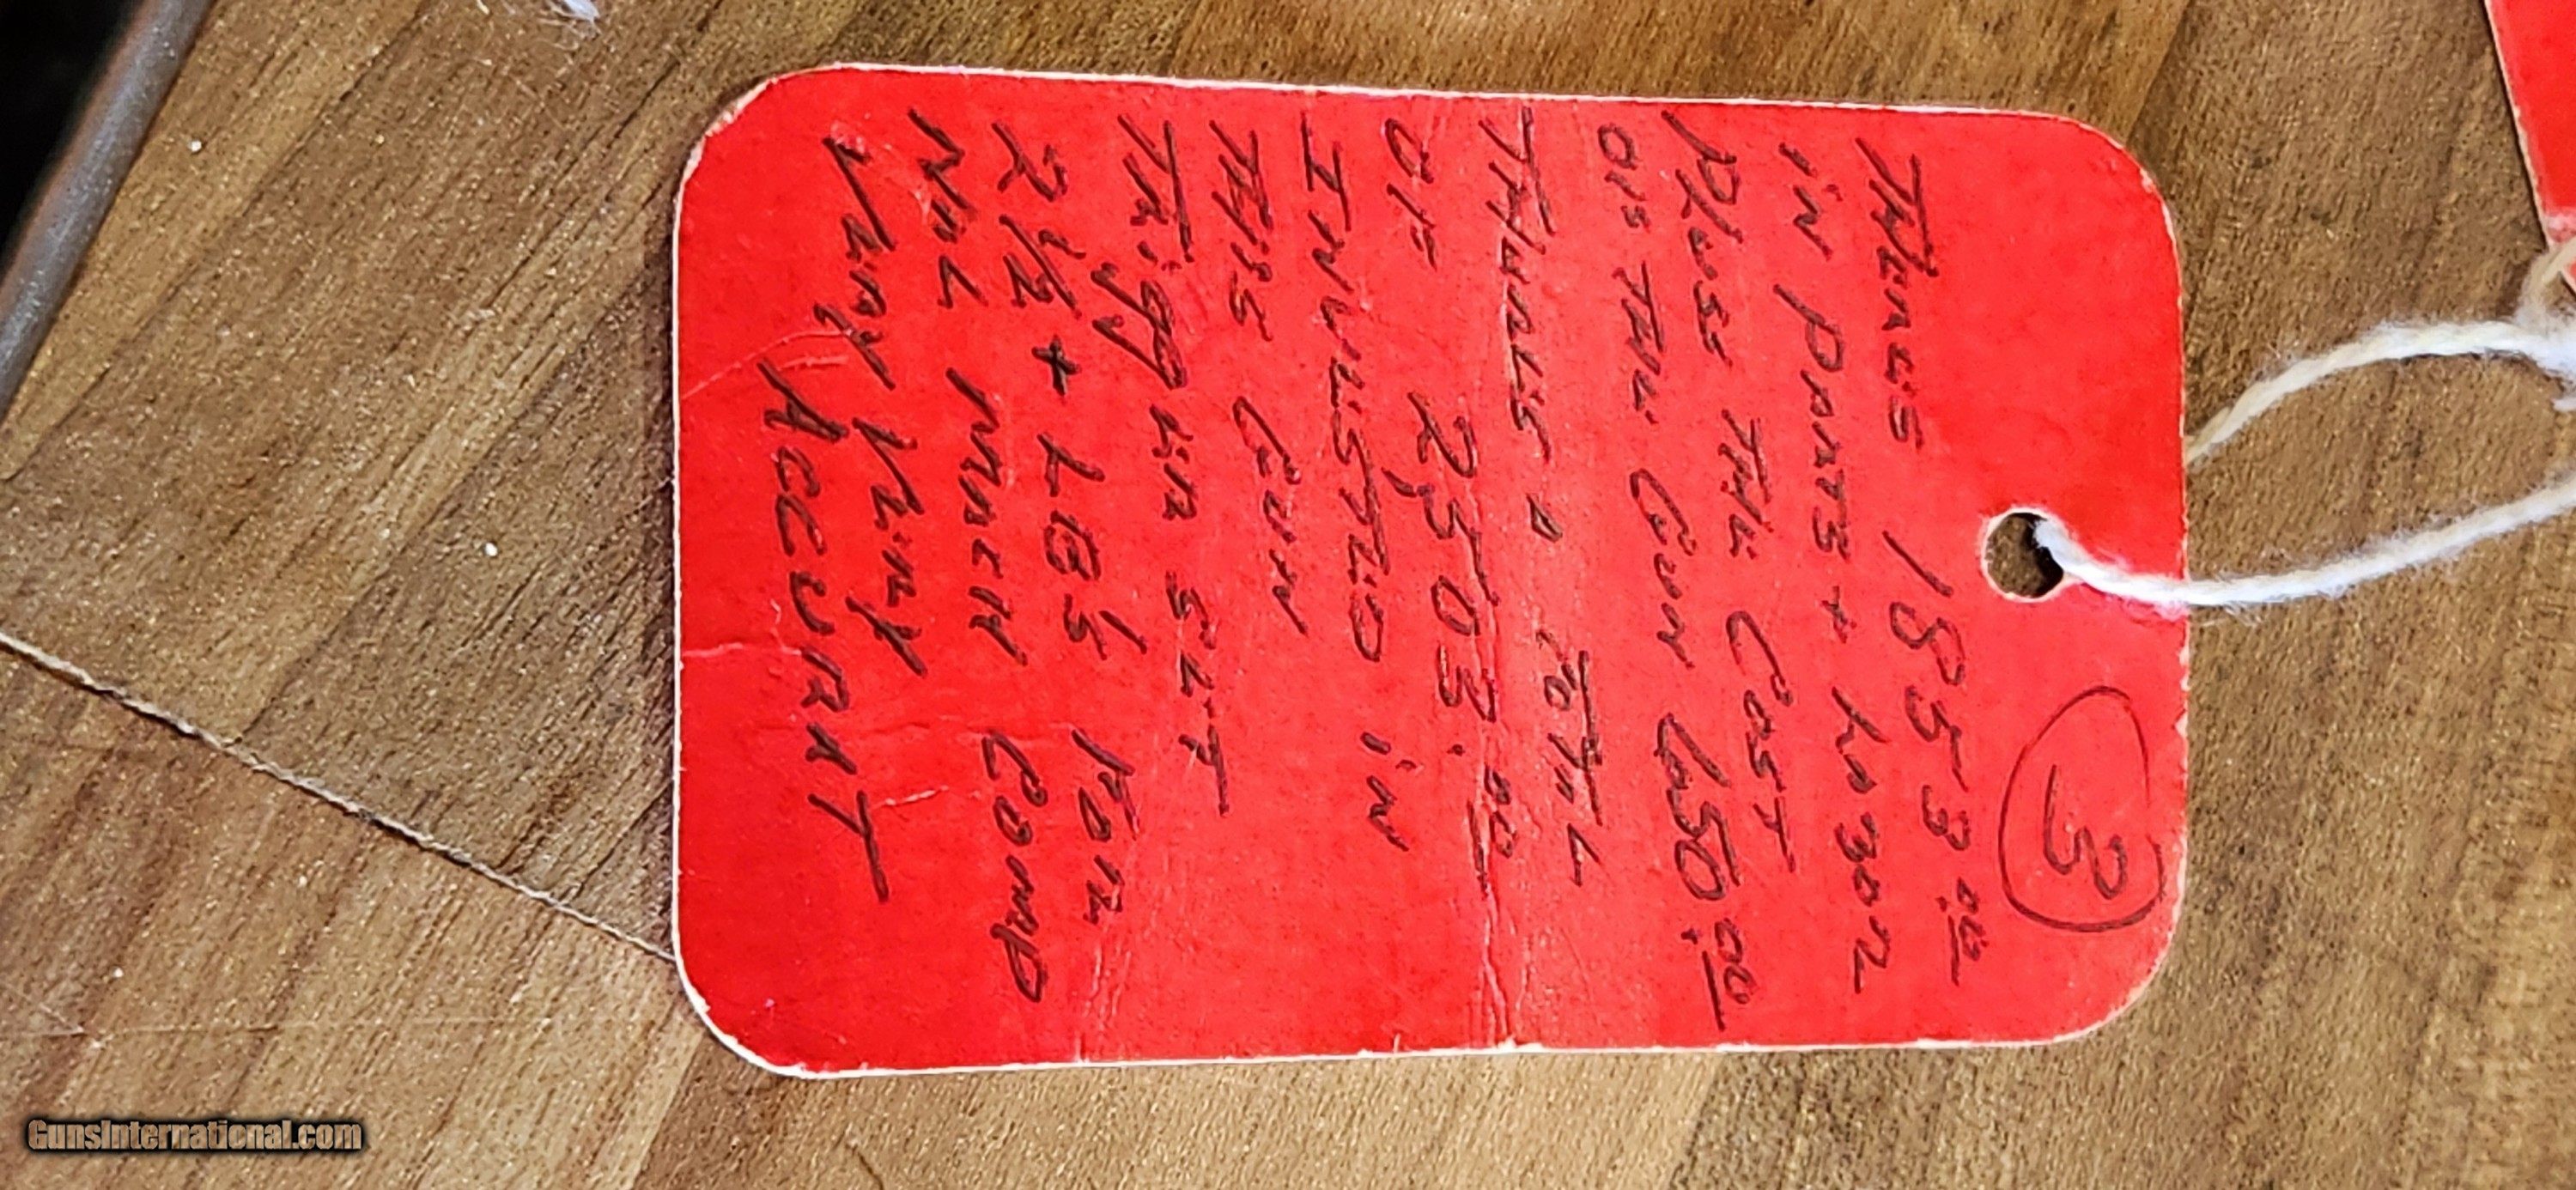 3
THERES 1853.00
IN PARTS + LABOR
PLUSS THE COST
OF THE GUN 650.00
THERES A TOTAL
OF 2,503.00
INVESTED IN
THIS GUN
TRIGGER SET
2 1/2 + LBS FOR
COMP
VERY VERY
ACCURAT
GunsInternational.com